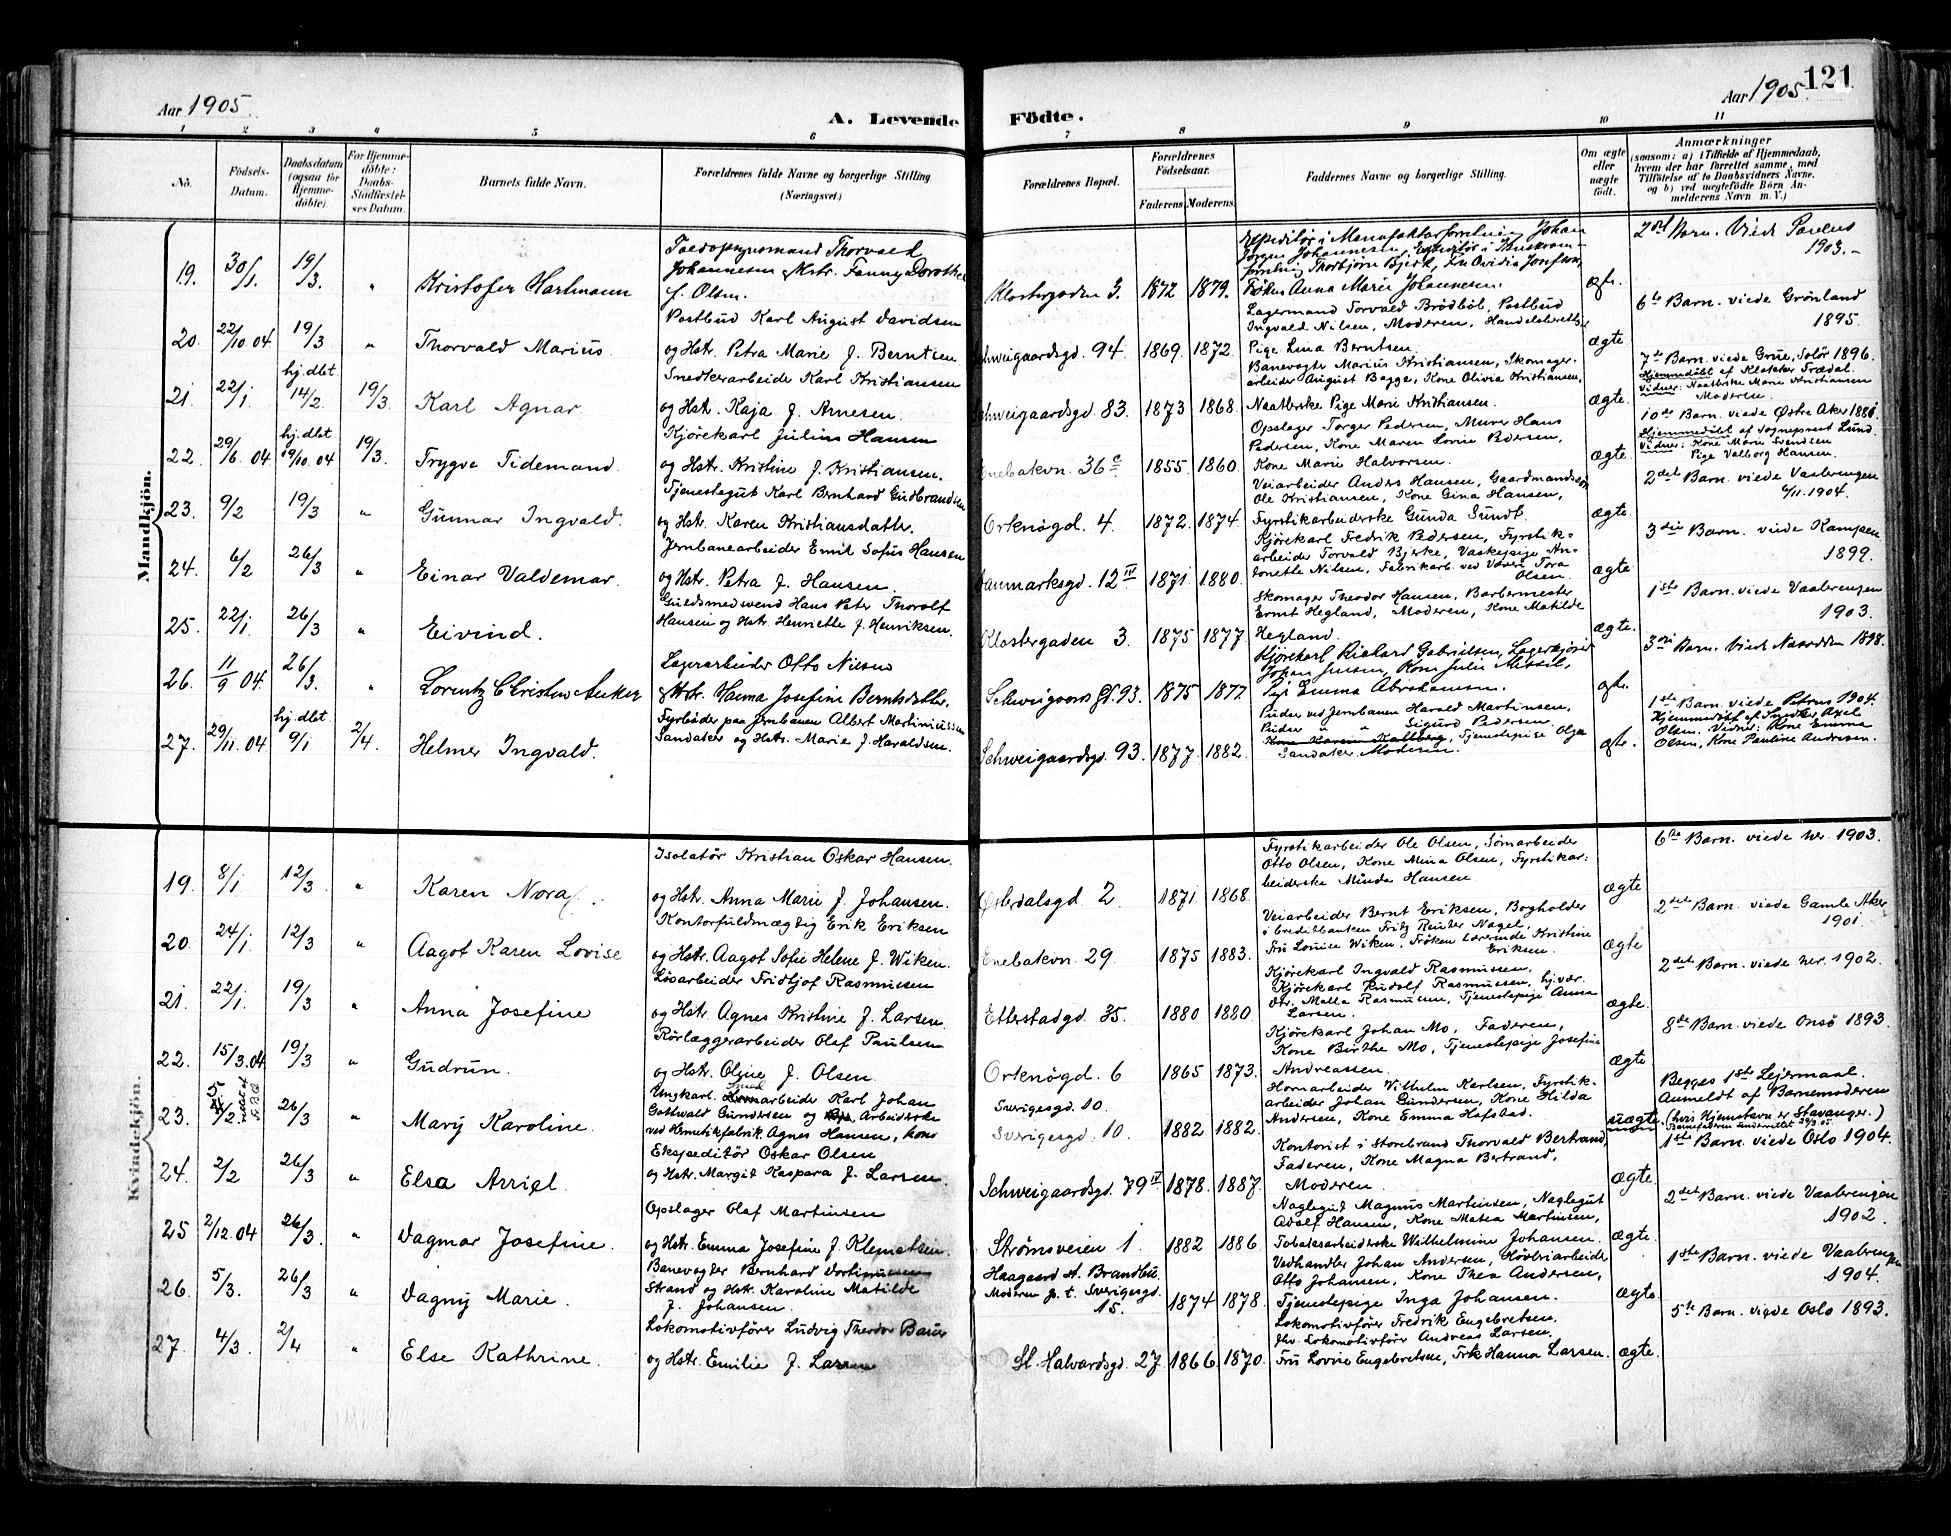 Aar 1905
A. Levende Födte.
Aar 1905. 121
1 2 3 4 5 6 7 8 9 10 11
No.
Födsels-
Datum.
Daabsdatum
(ogsaa for
Hjemme-
döbte).
For Hjemme-
döbte:
Daabs-
Stadfæstel-
ses Datum.
Barnets fulde Navn.
Forældrenes fulde Navne og borgerlige Stilling.
(Næringsvei.)
Forældrenes Bopæl.
Forældrenes
Födselsaar.
Faderens. Moderens.
Faddernes Navne og borgerlige Stilling.
Om ægte
eller
uægte
födt.
Anmærkninger
(saasom: a) i Tilfælde af Hjemmedaab,
hvem der har forrettet samme, med
Tilföielse af to Daabsvidners Navne,
og b) ved uægtefödte Börn An-
melderens Navn m. V.)
Mandkjön.
19. 30/1. 19/3. " Kristofer Hartmann
Johannesen & Hstr. Fanny Dorothea
f. Olsen.
Klostergaden 3. 1872 1879.
Johan
Jörgen Johannesen,
Thorbjörn Bjerk, Fru Ovidia Josefson,
Fröken Anna Marie Johannesen.
ægte.
2det Barn. Viede Paulus
1903.-
20. 22/10.04 19/3 " Thorvald Marius.
Postbud Karl August Davidsen
og Hstr. Petra Marie f. Berntsen
Schweigaardsgd. 94 1869. 1872.
Lagermand Torvald Brödböl, Postbud
Ingvald Nilsen, Moderen, Handelsbetj.
Pige Lina Berntsen.
ægte
6te Barn. viede Grönland
1895.
21. 22/1. hj.dbt 14/2. 19/3. Karl Agnar
Snedkerarbeide Karl Kristiansen
og Hstr. Kaja f. Arnesen.
Schweigaardsgd. 83. 1873 1868.
Banevogter Marius Kristiansen, Skomager-
arbeider August Bagge, Kone Olivia Kristiansen,
Pige Marie Kristiansen.
ægte.
7de Barn. viede Grue, Solör 1896.
Hjemmedöbt af Klokker Frædal.
Vidner: Marie Kristiansen
Moderen.
22. 29/6.04 hj.dbt 9/10.04 19/3. Trygve Tidemand.
Kjörekarl Julius Hansen
og Hstr. Kristine f. Kristiansen.
Enebakvn. 36c 1855. 1860.
Opslager Torger Pedersen, Murer Hans
Pedersen, Kone Maren Lovise Pedersen,
Kone Marie Halvorsen.
ægte.
10de Barn. viede Østre Aker
Hjemmedöbt af Sogneprest Lund.
Vidner: Kone Marie Svendsen
Pige Valborg Hansen.
23. 9/2 19/3 " Gunnar Ingvald.
Tjenestegut Karl Bernhard Gudbrandsen
og Hstr. Karen Kristiansdatter.
Orknögd. 4. 1872. 1874.
Veiarbeider Anders Hansen, Gaardmandssön
Ole Kristiansen, Kone Gina Hansen,
Fyrstikarbeiderske Gunda Sundt.
ægte.
2det Barn. viede Vaalerengen
6/11. 1904.
24. 6/2 26/3 " Einar Valdemar.
Jernbanearbeider Emil Sofus Hansen
og Hstr. Petra f. Hansen.
Danmarksgd. 12 IV 1871 1880.
Kjörekarl Fredrik Pedersen, Fyrstik-
arbeider Torvald Bjerke, Vaskepige An-
tonette Nilsen, Fabrikarb. ved Væveri Tora
Olsen.
ægte
3die Barn. viede Kampen
1899.
25. 22/1. 26/3 " Eivind.
Guldsmedsvend Hans Peter Thorolf
Hansen og Hstr. Henriette f. Henriksen.
Klostergaden 3. 1875 1877
Skomager Theodor Hansen, Barbermester
Ernst Hegland, Moderen, Kone Matilde
Hegland.
ægte.
1ste Barn. viede Vaalerengen
1903.
26. 11/9 04. 26/3. " Lorentz Christen Anker
Lagerarbeider Otto Nilsen
& Hstr. Hanna Josefine Berntsdatter.
Schweigaards gd. 93. 1875 1877.
Kjörekarl Richard Gabrielsen, Lagerskjöner
Johan Jensen, Kone Julie
Pige Emma Abrahamsen.
ægte.
3die Barn. Viede Nesodden 1898.
27. 29/11.04 hj.dbt 9/1 2/4. Helmer Ingvald.
Fyrböder paa Jernbanen Albert Martiniussen
Sandaker og Hstr. Marie f. Haraldsen.
Schweigaardsgd. 93. 1877. 1882.
Pudser ved Jernbanen Harald Martinsen,
Pudser " " Sigurd Pedersen.
Kone Karen Kallberg, Tjenestepige Olga
Sandaker, Moderen.
ægte.
1ste Barn. viede Petrus 1904.
Hjemmedöbt af Snedker Axel
Olsen. Vidner: Kone Emma
Olsen, Kone Pauline Andresen.
Kvindekjön.
19. 8/1. 12/3. " Karen Nora
Isolatör Kristian Oskar Hansen.
og Hstr. Anna Marie f. Johansen.
Østerdalsgd. 2. 1871 1868.
Fyrstikarbeider Ole Olsen, Sömarbeider
Otto Olsen, Kone Mina Olsen, Fyrstikar-
beiderske Minda Hansen
ægte
6te Barn. viede her. 1903.
20. 24/1. 12/3 " Aagot Karen Lovise
Kontorfuldmægtig Erik Eriksen
og Hstr. Aagot Sofie Helene f. Wiken.
Enebakvn. 29 1875 1883.
Veiarbeider Bernt Eriksen, Bogholder
i Creditbanken Fritz Reuter Nagel,
Fru Louise Wiken, Fröken Lærerinde Kristine
Eriksen.
ægte
2det Barn. viede Gamle Aker
1901.
21. 22/1. 19/3 " Anna Josefine
Lösarbeider Fridtjof Rasmussen
og Hstr. Agnes Kristine f. Larsen.
Etterstadgd. 35. 1880 1880.
Kjörekarl Ingvald Rasmussen,
Kjörekarl Rudolf Rasmussen, hj.vær.
dtr. Malla Rasmussen, Tjenestepige Anna
Larsen.
ægte.
2det Barn. viede her. 1902.
22. 15/3.04 19/3 " Gudrun.
Rörlæggerarbeider Olaf Paulsen
og Hstr. Oline f. Olsen.
Orknögd. 6 1865 1873.
Kjörekarl Johan Mo, Faderen,
Kone Birthe Mo, Tjenestepige Josefine
Andreassen.
ægte
8de Barn. viede Onsö 1893.
23. 5/2 26/3 " Mary Karoline.
Ungkarl. Smedarbeide Karl Johan
Gothvald Gundersen og Arbeiderske
ved Hermetikfabrik. Agnes Hansen,
Sverigesgd. 10.
Sverigesgd. 10. 1882 1882.
Hornarbeider Wilhelm Karlsen, Fyrstik-
arbeider Johan Gundersen, Kone Hilda
Andersen, Kone Emma Hafstad.
uægte.
Begges 1ste Leiermaal.
Anmeldt af Barnemoderen
(hvis Hjemstavn er Stavanger.)
24. 2/2 26/3 " Elsa Arriel.
Ekspeditör Oskar Olsen
og Hstr. Margit Kaspara f. Larsen.
Schweigaardsgd. 79 IV 1878. 1887.
Kontorist i Storebrand Thorvald Bertrand,
Faderen, Kone Magna Bertrand,
Moderen.
ægte.
1ste Barn. viede Oslo 1904.
25 2/12.04 26/3. " Dagmar Josefine.
Opslager Olaf Martinsen
og Hstr. Emma Josefine f. Klemetsen.
Strömsveien 1. 1882 1886.
Naglegut Magnus Martinsen, Naglegut
Adolf Hansen, Kone Matea Martinsen,
Tobaksarbeiderske Wilhelmine Johansen.
ægte.
2det Barn. viede Vaalerengen
1902.
26 5/3. 26/3 " Dagny Marie.
Banevogter Bernhard
Strand og Hstr. Karoline Matilde
f. Johansen.
Haagaard st. Brandbu.
Moderen p. t. Sverigesgd.
15. 1874 1878.
Vedhandler Johan Andersen, Hövleriarbeide
Otto Johansen, Kone Thea Andersen,
Tjenestepige Inga Johansen.
ægte
1ste Barn. viede Vaalerengen
1904.
27. 4/3. 2/4 " Else Kathrine.
Lokomotivförer Ludvig Theodor Baur
og Hstr. Emilie f. Larsen
St. Halvardsgd. 27. 1866 1870.
Lokomotivförer Fredrik Engebretsen.
fhv. Lokomotivförer Andreas Larsen.
Fru Lovise Engebretsen, Frk Hanna Larsen.
ægte.
5te Barn. viede Oslo 1893.